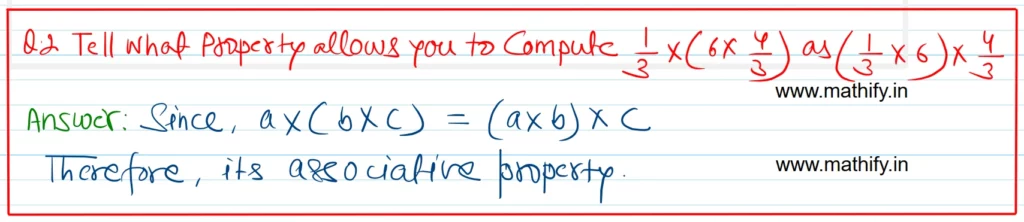 Q.2 Tell what Property allows you to Compute 1/3 × (6 × 4/3) as (1/3 × 6) × 4/3
www.mathify.in
Answer: Since, a × (b × c) = (a × b) × c
Therefore, its associative property.
www.mathify.in